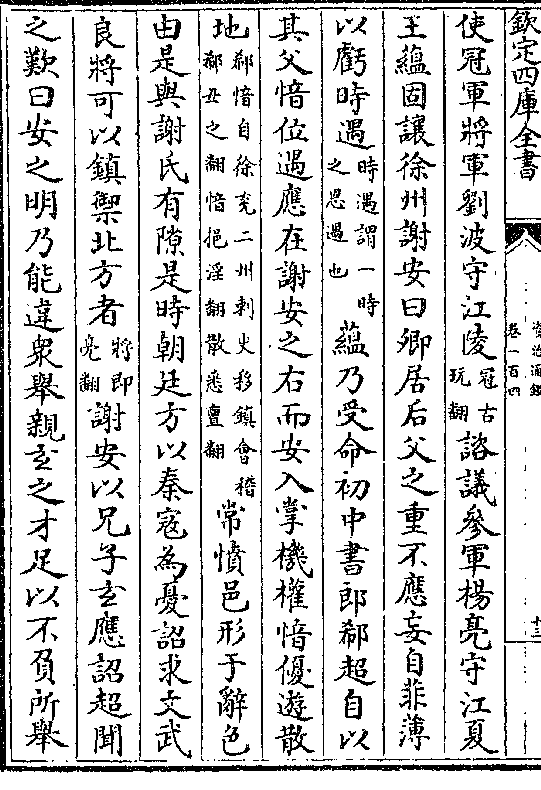 欽定四庫全書
資治通鑑
卷一百四
十三
使冠軍將軍劉波守江陵冠古玩翻諮議參軍楊亮守江夏
王蘊固讓徐州謝安曰卿居后父之重不應妄自菲薄
以虧時遇時遇謂一時之恩遇也蘊乃受命初中書郎郗超自以
其父愔位遇應在謝安之右而安入掌機權愔優遊散
地郗愔自徐兖二州刺史移鎮會稽郗丑之翻愔挹淫翻散悉亶翻常憤邑形于辭色
由是與謝氏有隙是時朝廷方以秦寇為憂詔求文武
良將可以鎮禦北方者將即亮翻謝安以兄子玄應詔超聞
之歎曰安之明乃能違衆舉親玄之才足以不負所舉